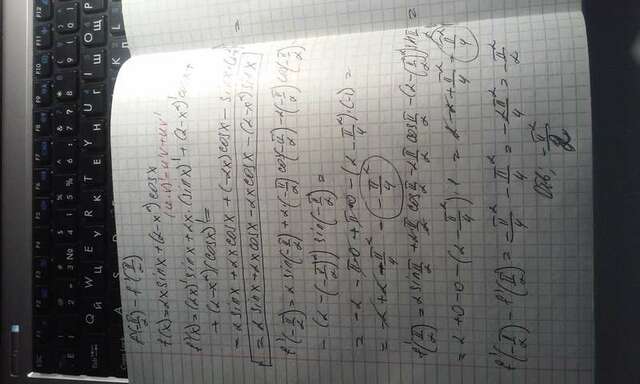 f'(-π/2) - f'(π/2)
f(x)=2x sinx+(2-x²)cosx
(u·v)'=u'v+uv'
f'(x)=(2x)'sinx+2x·(sinx)'+(2-x²)'cosx+
+(2-x²)(cosx)'=
=2sinx+2xcosx+(-2x)cosx-sinx(2-x²)=
=2sinx+2xcosx-2xcosx-(2-x²)sinx
f'(-π/2)=2sin(-π/2)+2(-π/2)cos(-π/2)-2(-π/2)cos(-π/2)
-(2-(-π/2)²)sin(-π/2)=
=-2-π·0+π·0-(2-π²/4)·(-1)=
=-2+2-π²/4=-π²/4
f'(π/2)=2sinπ/2+2π/2cosπ/2-2π/2cosπ/2-(2-(π/2)²)sinπ/2=
=2+0-0-(2-π²/4)·1=2-2+π²/4=π²/4
f'(-π/2)-f'(π/2)=-π²/4-π²/4=-2π²/4=-π²/2
Отв: -π²/2